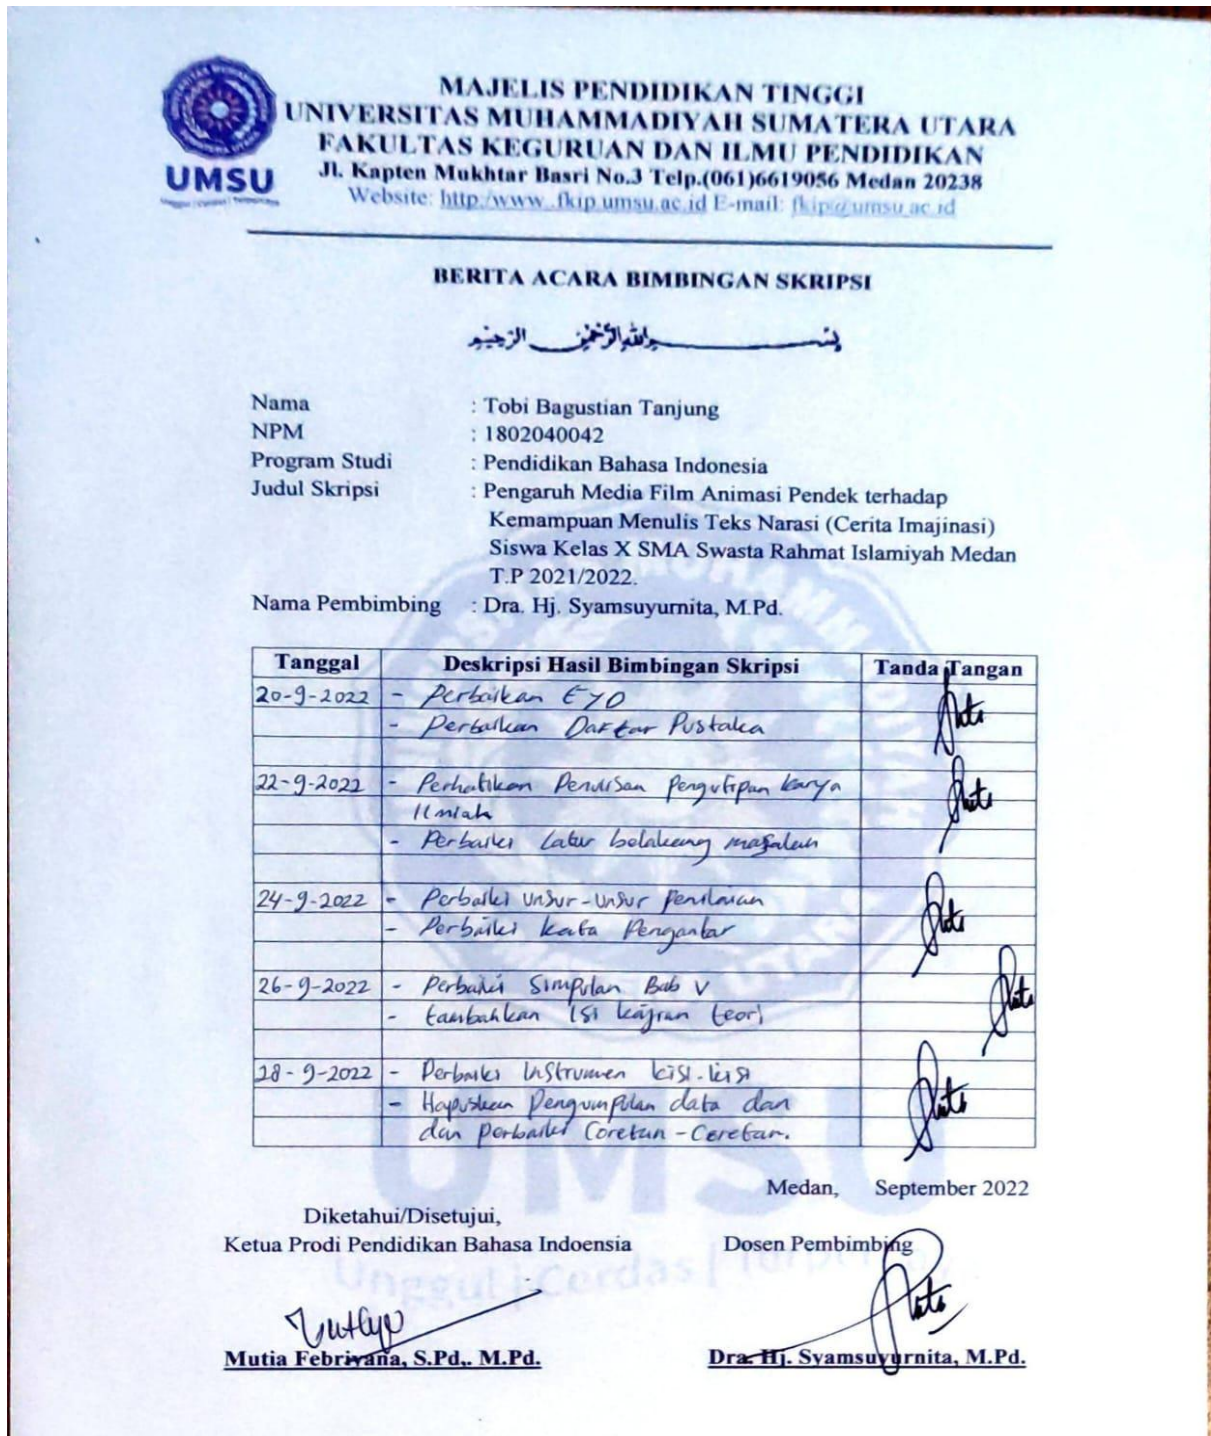 MAJELIS PENDIDIKAN TINGGI
UNIVERSITAS MUHAMMADIYAH SUMATERA UTARA
FAKULTAS KEGURUAN DAN ILMU PENDIDIKAN
Jl. Kapten Mukhtar Basri No.3 Telp.(061)6619056 Medan 20238
Website: http:/www..fkip.umsu.ac.id E-mail: fkip@umsu.ac.id
UMSU
Unggul | Cerdas | Terpercaya
BERITA ACARA BIMBINGAN SKRIPSI
بِسْمِ اللهِ الرَّحْمٰنِ الرَّحِيْمِ
Nama : Tobi Bagustian Tanjung
NPM : 1802040042
Program Studi : Pendidikan Bahasa Indonesia
Judul Skripsi : Pengaruh Media Film Animasi Pendek terhadap
Kemampuan Menulis Teks Narasi (Cerita Imajinasi)
Siswa Kelas X SMA Swasta Rahmat Islamiyah Medan
T.P 2021/2022.
Nama Pembimbing : Dra. Hj. Syamsuyurnita, M.Pd.
Tanggal Deskripsi Hasil Bimbingan Skripsi Tanda Tangan
20-9-2022 - Perbaikan EYD
- Perbaikan Daftar Pustaka
22-9-2022 - Perhatikan Penulisan Pengutipan karya
Ilmiah
- Perbaiki Latar belakang masalah
24-9-2022 - Perbaiki Unsur-Unsur Penilaian
- Perbaiki kata Pengantar
26-9-2022 - Perbaiki Simpulan Bab V
- tambahkan isi kajian teori
28-9-2022 - Perbaiki Instrumen kisi-kisi
- Hapuskan Pengumpulan data dan
dan perbaiki Coretan-Coretan.
Medan, September 2022
Diketahui/Disetujui,
Ketua Prodi Pendidikan Bahasa Indoensia Dosen Pembimbing
Mutia Febriyana, S.Pd,. M.Pd. Dra. Hj. Syamsuyurnita, M.Pd.
UMSU
Unggul | Cerdas | Terpercaya